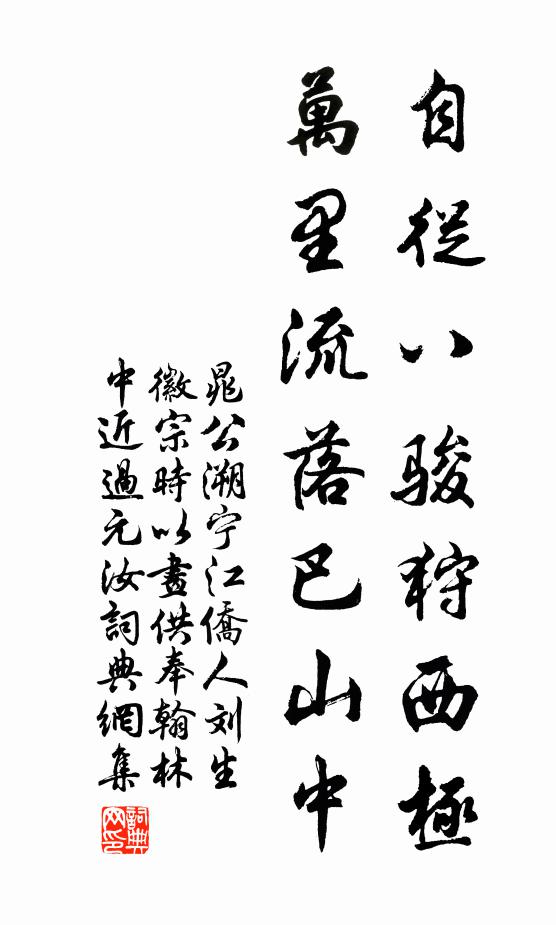 自從八駿狩西極
萬里流落巴山中
晁公溯宁江僑人刘生
徽宗時以畫供奉翰林
中近過元汝詞典網集
詞典网印